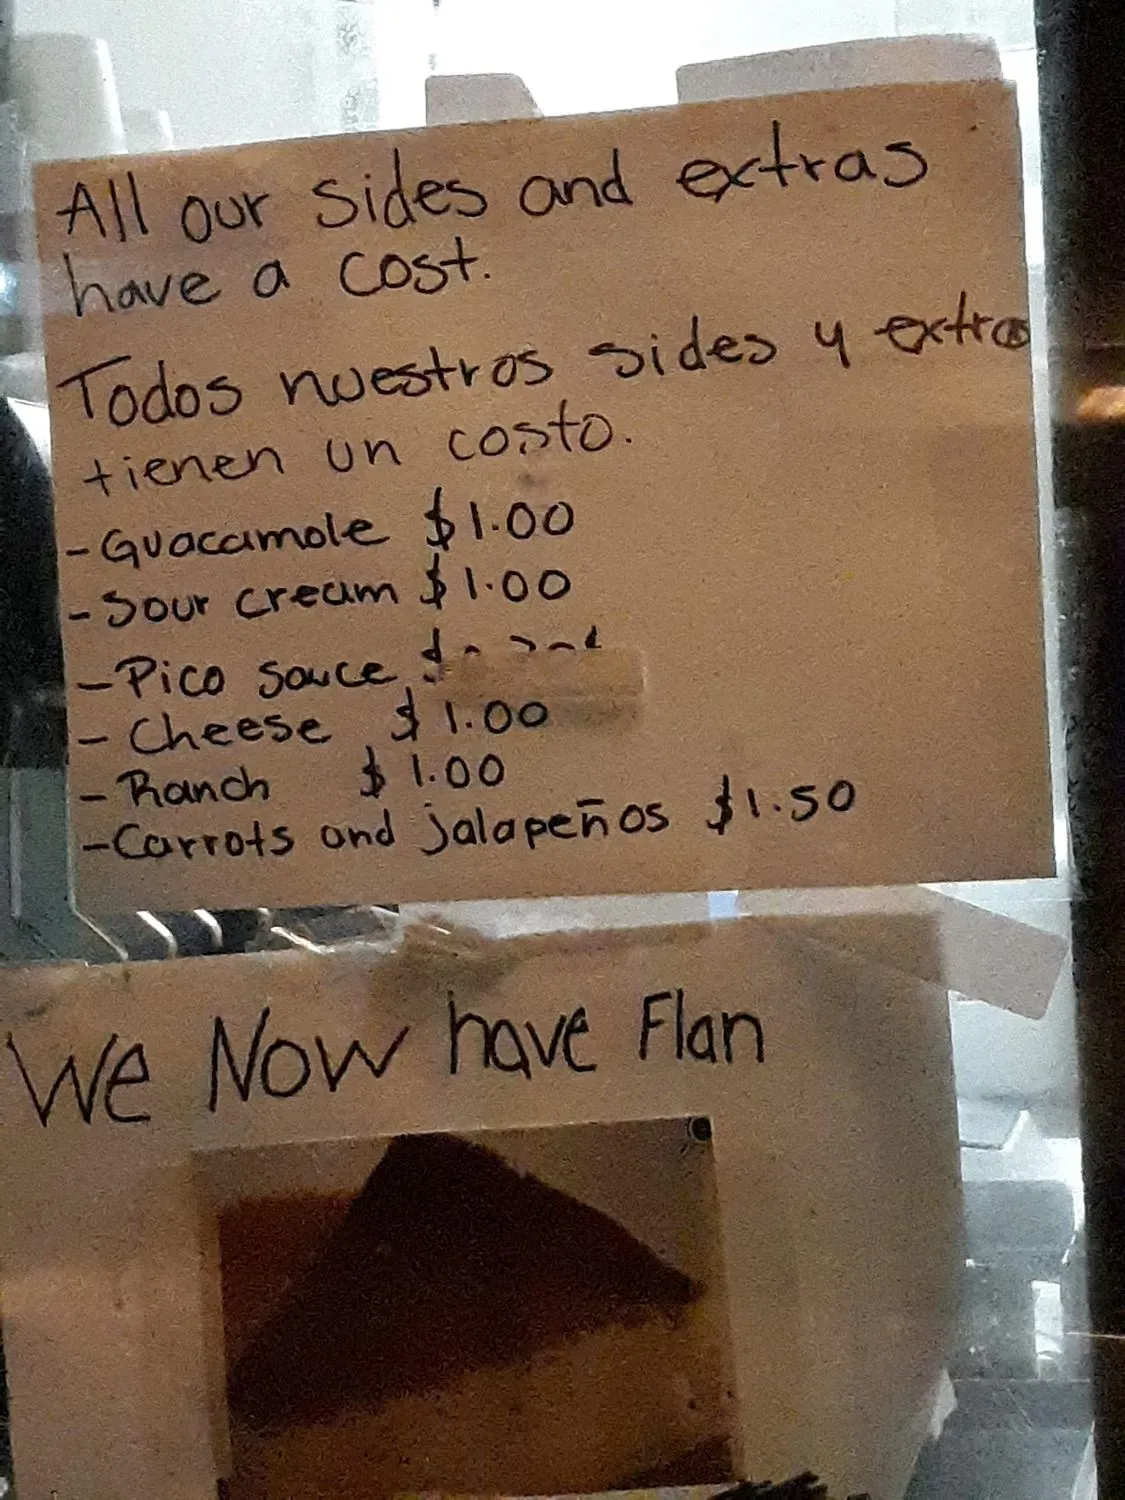 All our sides and extras
have a cost.
Todos nuestros sides y extras
tienen un costo.
- Guacamole $1.00
- Sour cream $1.00
- Pico sauce $
- Cheese $1.00
- Ranch $1.00
- Carrots and jalapeños $1.50
We Now have Flan